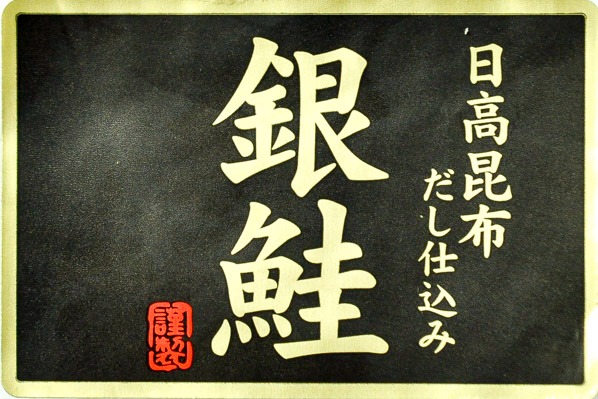 日高昆布
だし仕込み
銀鮭
謹製